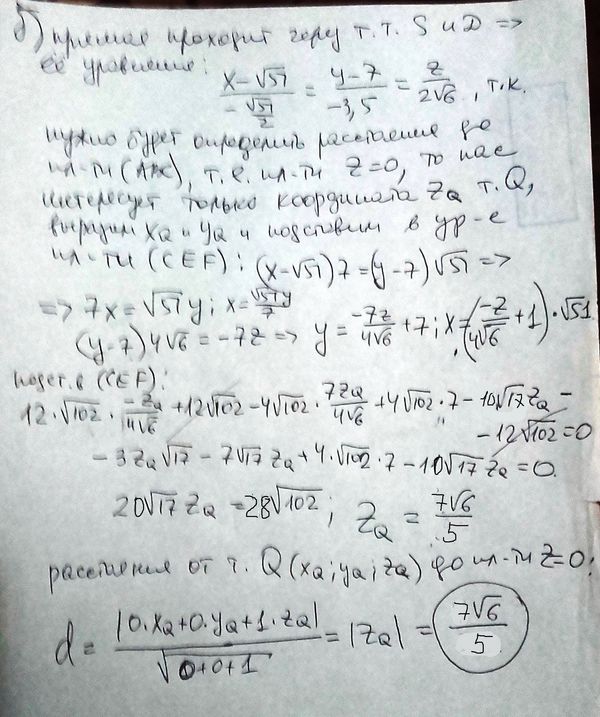 б) прямая проходит через т.т. S и D =>
её уравнение:
(x-√51)/(-√51/2) = (y-7)/(-3,5) = z/(2√6), т.к.
нужно будет определить расстояние до
пл-ти (ABC), т.е. пл-ти z=0, то нас
интересует только координата z_Q т. Q,
выразим x_Q и y_Q и подставим в ур-е
пл-ти (CEF): (x-√51)7=(y-7)√51 =>
=> 7x=√51y; x=√51y/7
(y-7)4√6=-7z => y=-7z/(4√6)+7; x=(-z/(4√6)+1)·√51
подст. в (CEF):
12·√102·(-z_Q)/(4√6)+12√102-4√102·7z_Q/(4√6)+4√102·7-10√17z_Q-
-12√102=0
-3z_Q√17-7√17z_Q+4·√102·7-10√17z_Q=0.
20√17z_Q=28√102; z_Q=7√6/5
расстояние от т. Q(x_Q;y_Q;z_Q) до пл-ти z=0:
d=|0·x_Q+0·y_Q+1·z_Q|/√(0+0+1)=|z_Q|=7√6/5